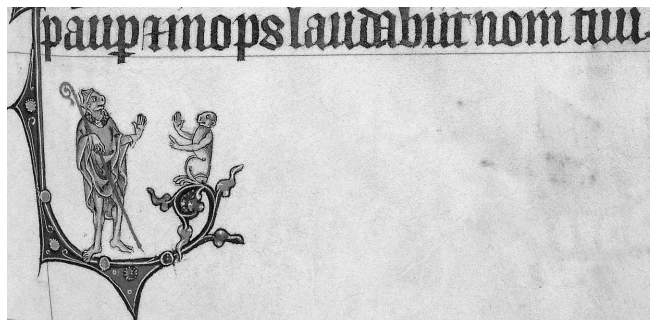 paup ⁊ inops laudabūt nom tuū